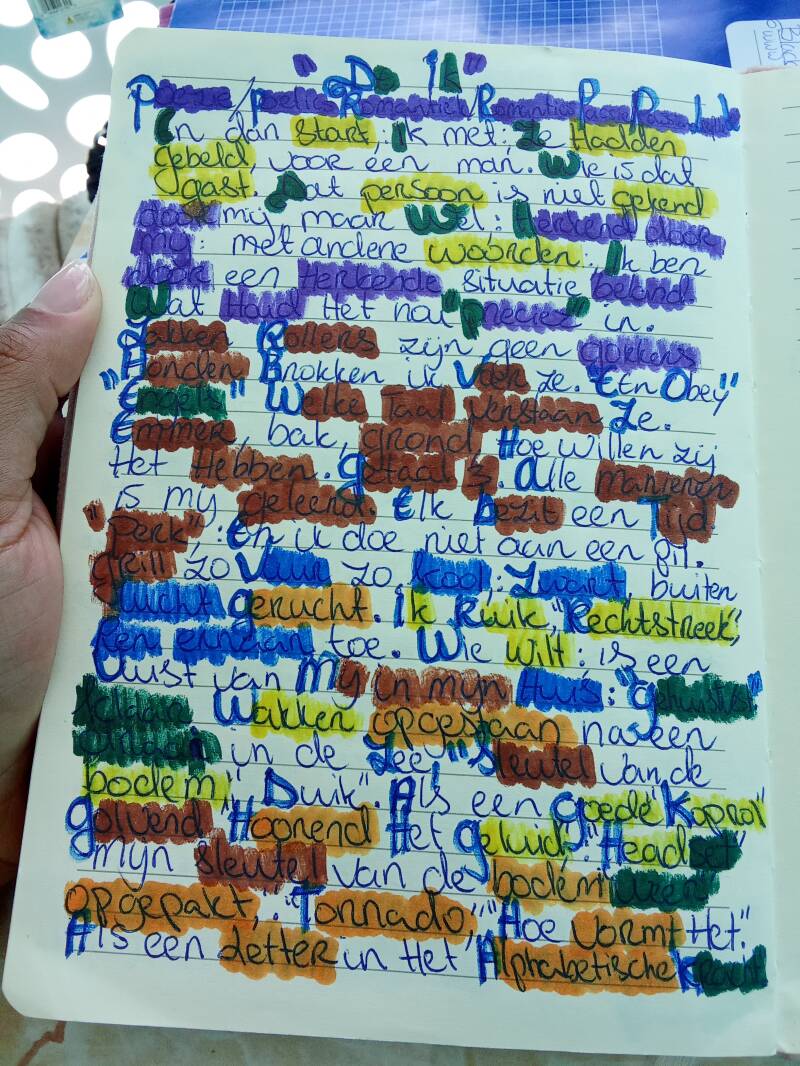 "De Ik"
Poëzie/poëtics Romantiek/Romantics Passie
En dan start,: Ik met: Ze Hadden
gebeld, voor een man. Wie is dat
gast. Dat persoon is niet gekend
door mij maar Wel: Herkend door
mij: met andere woorden: Ik ben
door een Herkende situatie beland
Wat Houd Het nou "preciez" in.
Zakken Rollers zijn geen gokkers
Honden Brokken ik Voer ze. "EEn Obey"
"Engels" Welke Taal verstaan Ze.
Emmer, bak, grond Hoe willen zij
Het Hebben. getaal 3. Alle manieren
is mij geleerd. Elk bezit een Tijd
"Perk",: En ik doe niet aan een pil.
grill zo Vuur zo, kool,: Zwart, buiten
lucht gerucht. Ik Ruik, "Rechtstreek",
toe. Wie wilt: is een
Vuist van Mij in mijn Huis: "gehuist(s)"
Wakken opgestaan na een
in de Zee "Sleutel van de
bodem," Duik". Als een goede "Koprol"
golvend "Hoorend Het geluid: "Headset"
mijn sleutel van de bodem uren"
opgepakt,: "Tornado," "Hoe Vormt Het".
Als een Letter in Het Alphabetische Kracht